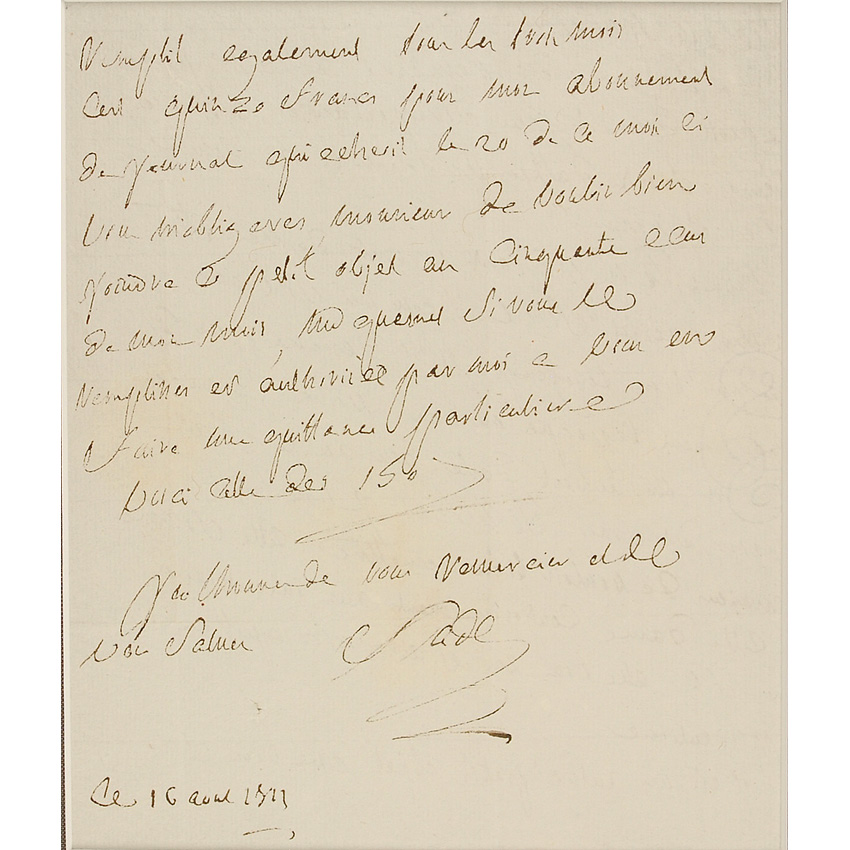 remplit egalement tous les trois mois
cest quinze francs pour mon abonnement
de journal qui echerit le 20 de ce mois ci
vous m'obligerés, monsieur de vouloir bien
joindre ce petit objet au cinquante ecus
de mon mois, md quesnet si vous le
remplisses est authorisée par moi a vous en
faire une quittance particuliere
voici celle des 150
jai lhonneur de vous remercier et de
vous saluer Sade
Ce 16 avril 1811